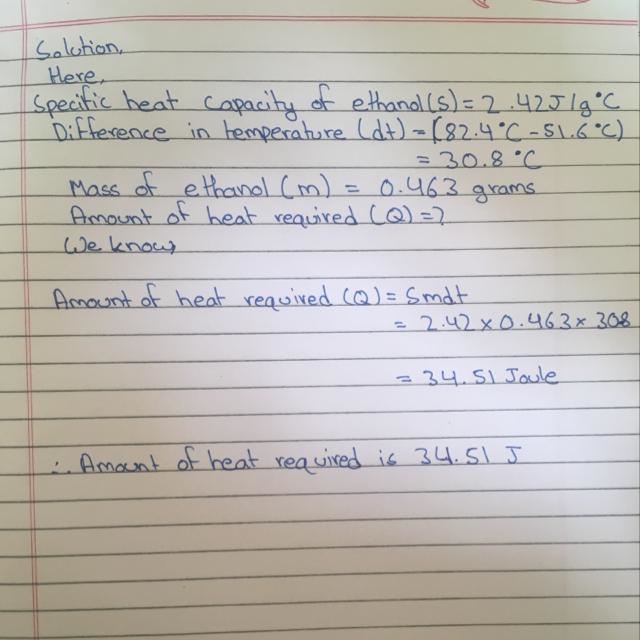 Solution,
Here,
Specific heat capacity of ethanol(s) = 2.42J/g°C
Difference in temperature (dt) = (82.4°C - 51.6°C)
= 30.8°C
Mass of ethanol (m) = 0.463 grams
Amount of heat required (Q) = ?
We know,
Amount of heat required (Q) = smdt
= 2.42 x 0.463 x 308
= 34.51 Joule
∴ Amount of heat required is 34.51 J